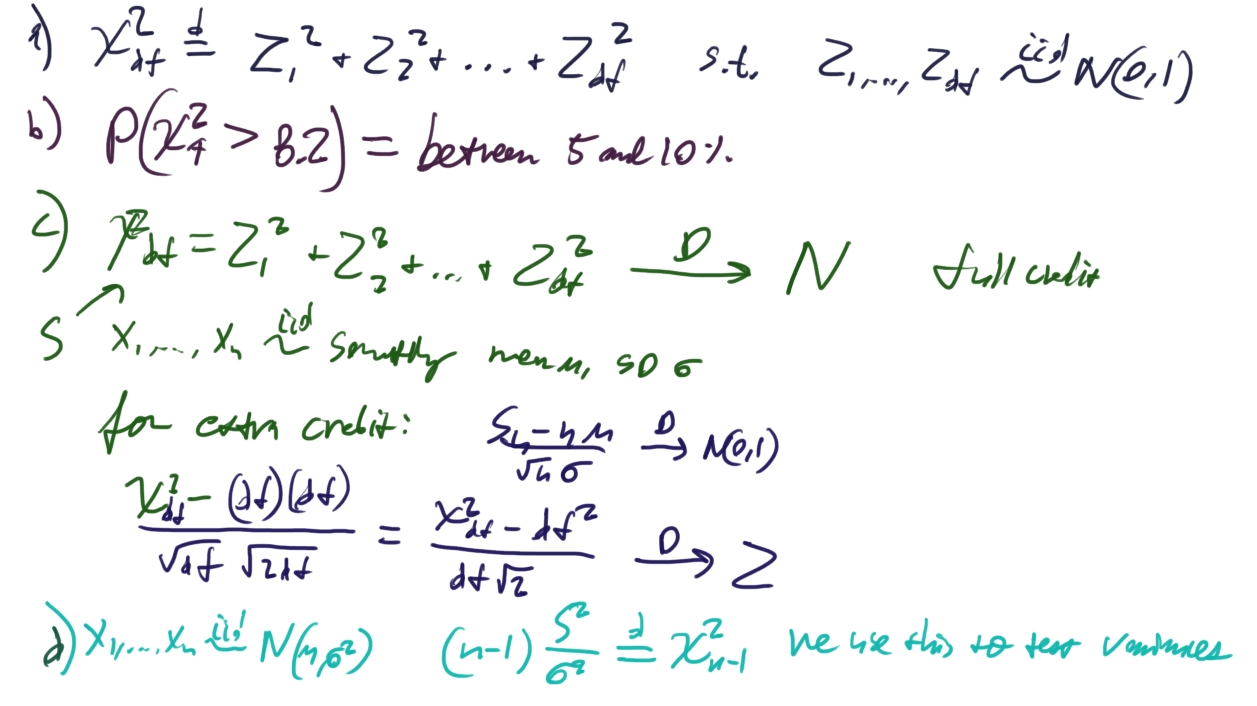 a) χ²_df =^d Z₁² + Z₂² + ... + Z_df² s.t. Z₁, ..., Z_df ~^iid N(0,1)
b) P(χ²₄ > 8.2) = between 5 and 10%.
c) χ²_df = Z₁² + Z₂² + ... + Z_df² →^D N full credit
S X₁, ..., Xₙ ~^iid something mean μ, SD σ
for extra credit: (Sₙ - nμ)/(√n σ) →^D N(0,1)
(χ²_df - (df)(df))/(√df √2df) = (χ²_df - df²)/(df√2) →^D Z
d) X₁, ..., Xₙ ~^iid N(μ,σ²) (n-1) S²/σ² =^d χ²_n-1 we use this to test variances